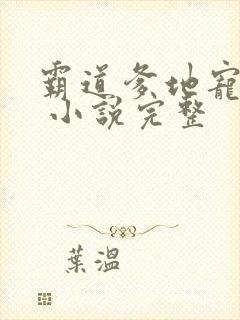 霸道爹地寵
小說完整
葉溫